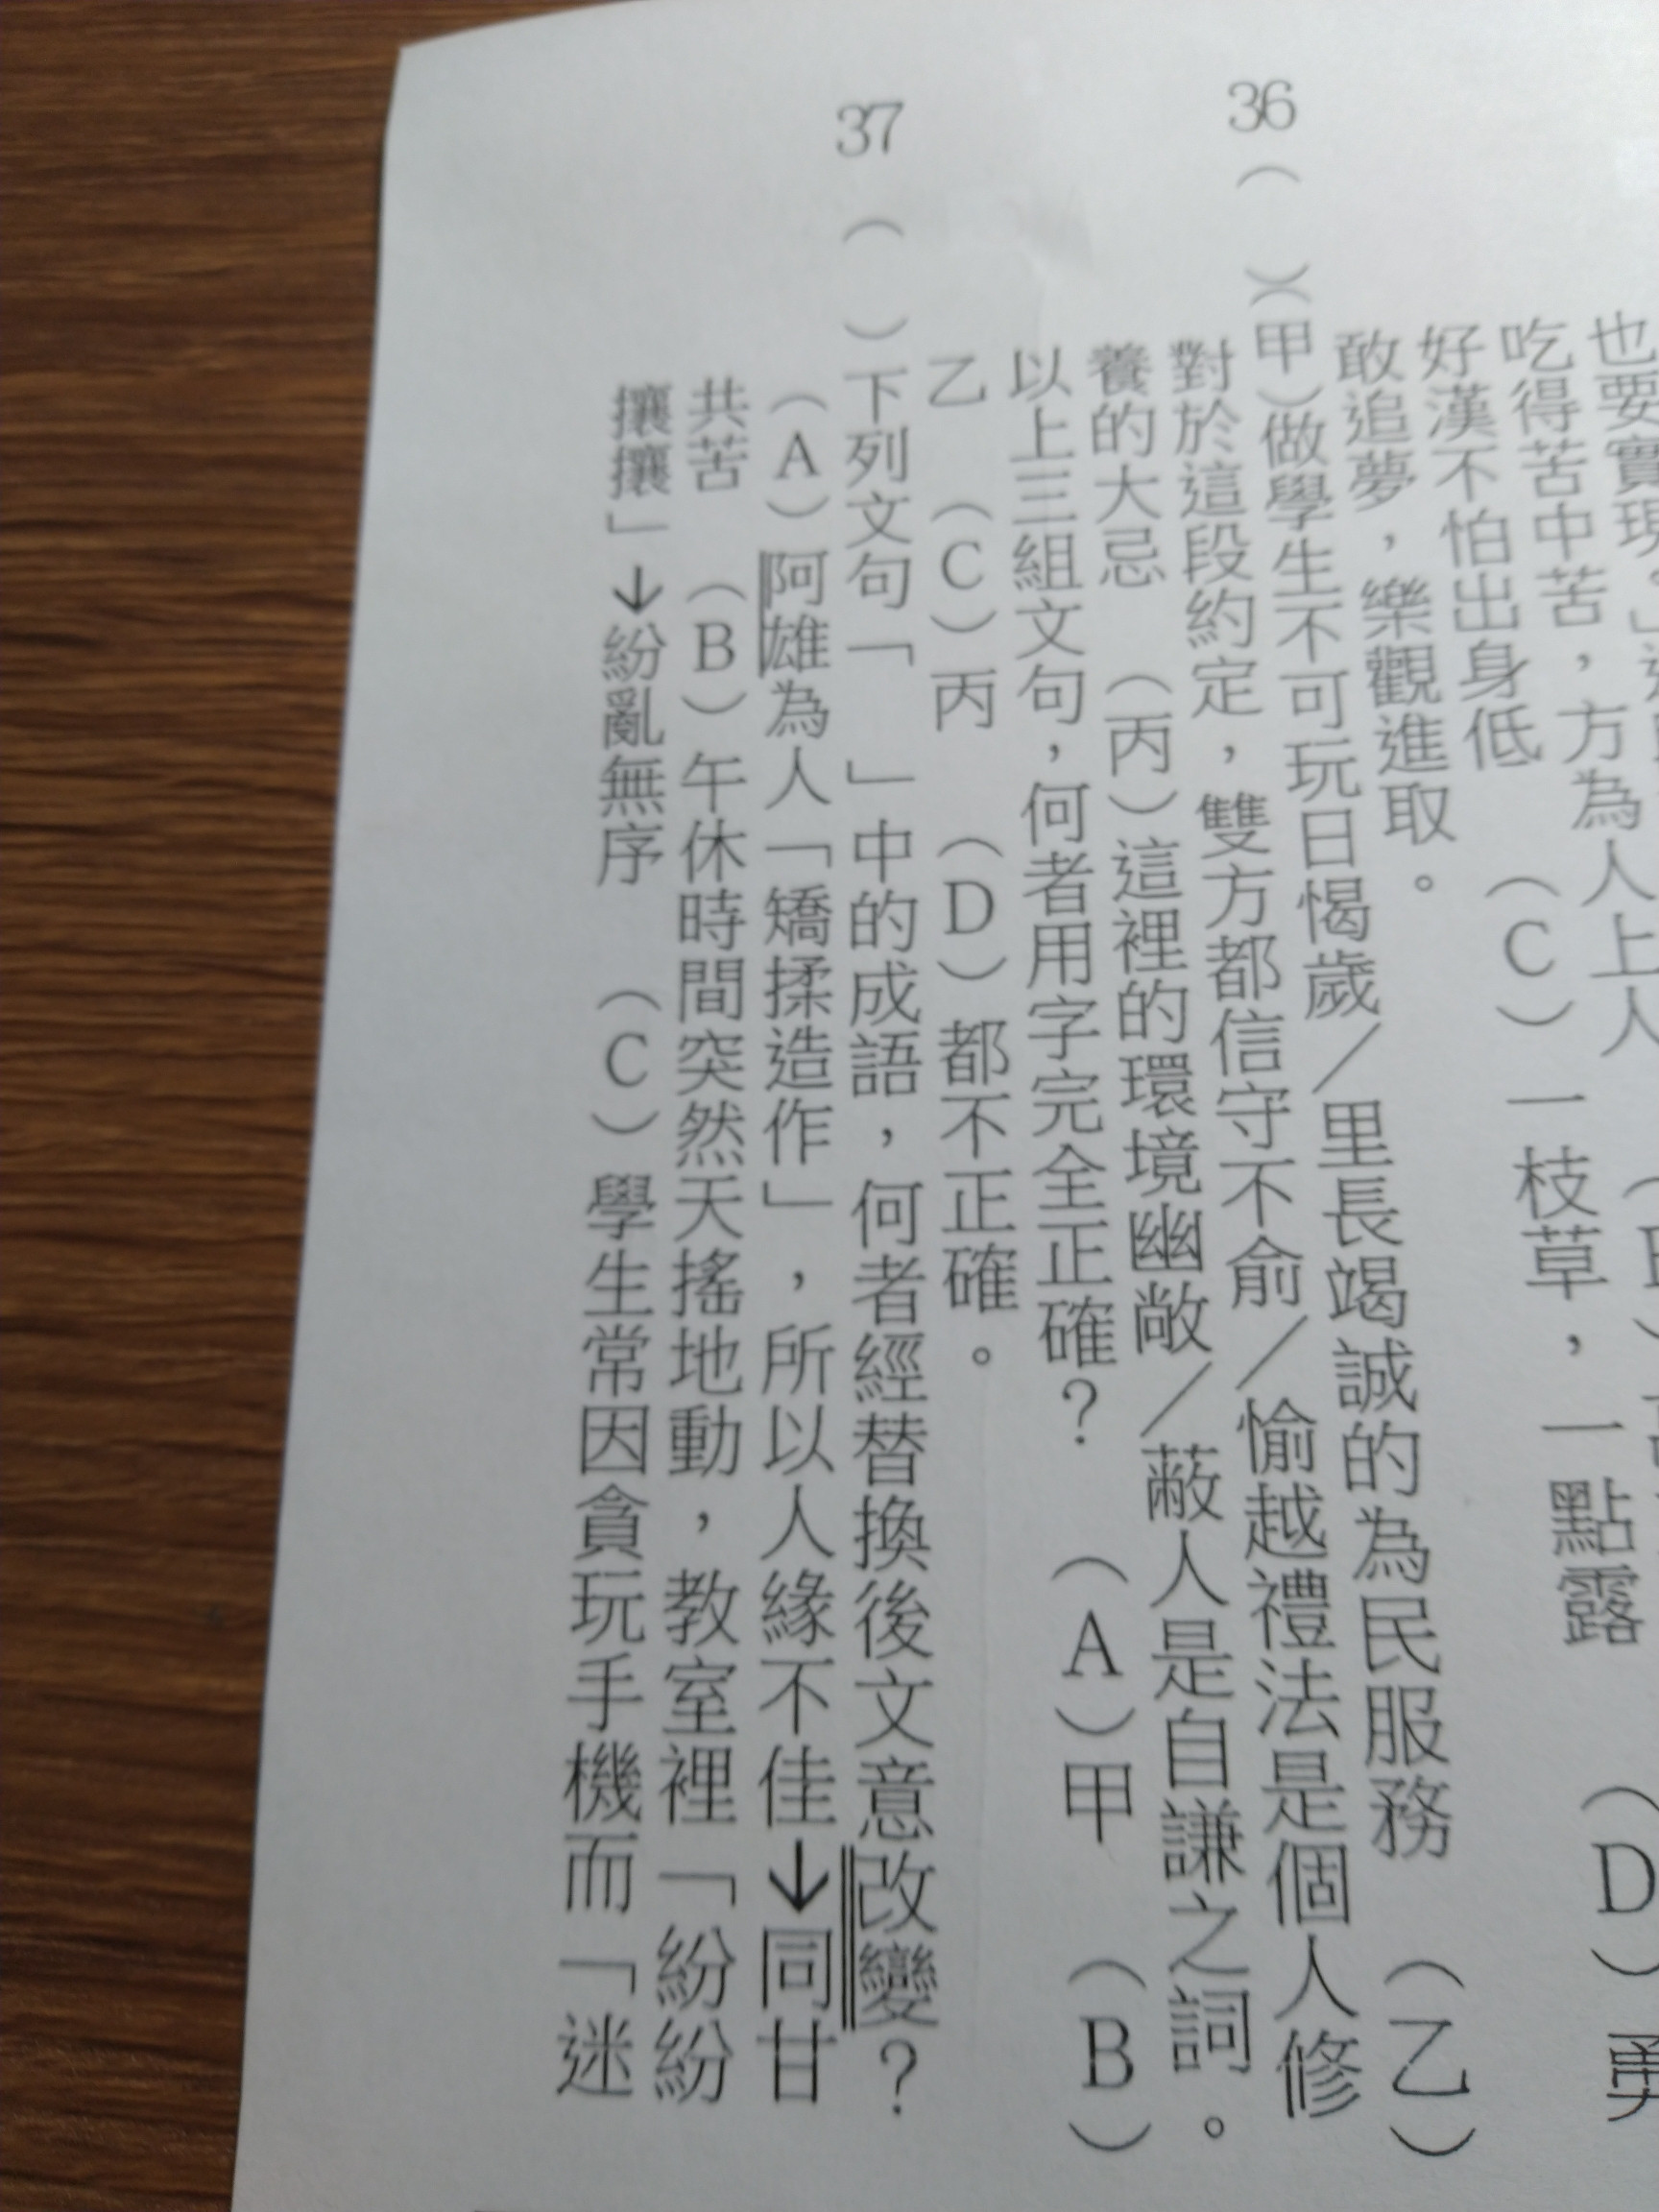 也要實現。」
吃得苦中苦，方為人上人
好漢不怕出身低 （C）一枝草，一點露 （D）勇
敢追夢，樂觀進取。
36（ ）（甲）做學生不可玩日愒歲／里長竭誠的為民服務 （乙）
對於這段約定，雙方都信守不俞／愉越禮法是個人修
養的大忌 （丙）這裡的環境幽敞／蔽人是自謙之詞。
以上三組文句，何者用字完全正確？ （A）甲 （B）
乙 （C）丙 （D）都不正確。
37（ ）下列文句「 」中的成語，何者經替換後文意改變？
（A）阿雄為人「矯揉造作」，所以人緣不佳→同甘
共苦 （B）午休時間突然天搖地動，教室裡「紛紛
攘攘」→紛亂無序 （C）學生常因貪玩手機而「迷